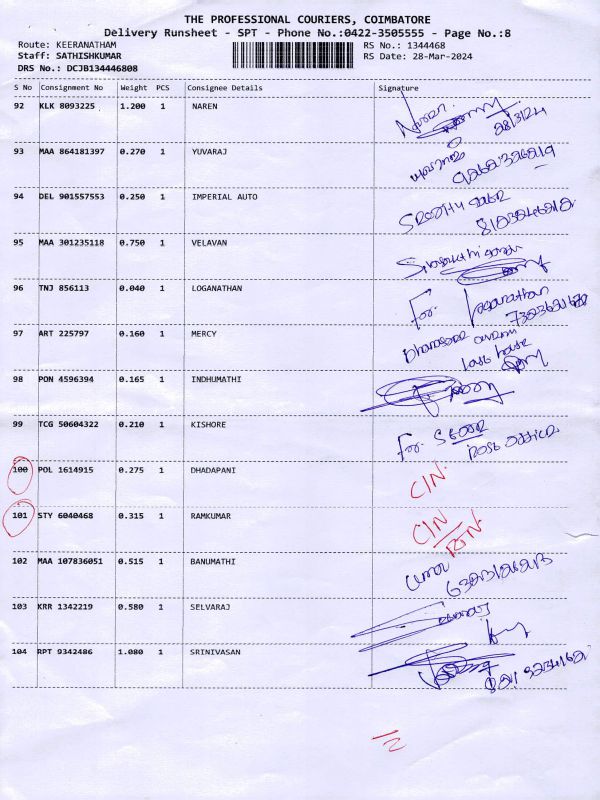 THE PROFESSIONAL COURIERS, COIMBATORE
Delivery Runsheet - SPT - Phone No.:0422-3505555 - Page No.:8
Route: KEERANATHAM RS No.: 1344468
Staff: SATHISHKUMAR RS Date: 28-Mar-2024
DRS No.: DCJB134446808
S No Consignment No Weight PCS Consignee Details Signature
92 KLK 8093225 1.200 1 NAREN Naren
28/3/24
93 MAA 864181397 0.270 1 YUVARAJ
94 DEL 901557553 0.250 1 IMPERIAL AUTO
95 MAA 301235118 0.750 1 VELAVAN
96 TNJ 856113 0.040 1 LOGANATHAN For
97 ART 225797 0.160 1 MERCY
last house
98 PON 4596394 0.165 1 INDHUMATHI
99 TCG 50604322 0.210 1 KISHORE For
Post office
100 POL 1614915 0.275 1 DHADAPANI CIN
101 STY 6040468 0.315 1 RAMKUMAR CIN
RTN
102 MAA 107836051 0.515 1 BANUMATHI
103 KRR 1342219 0.580 1 SELVARAJ
104 RPT 9342486 1.080 1 SRINIVASAN